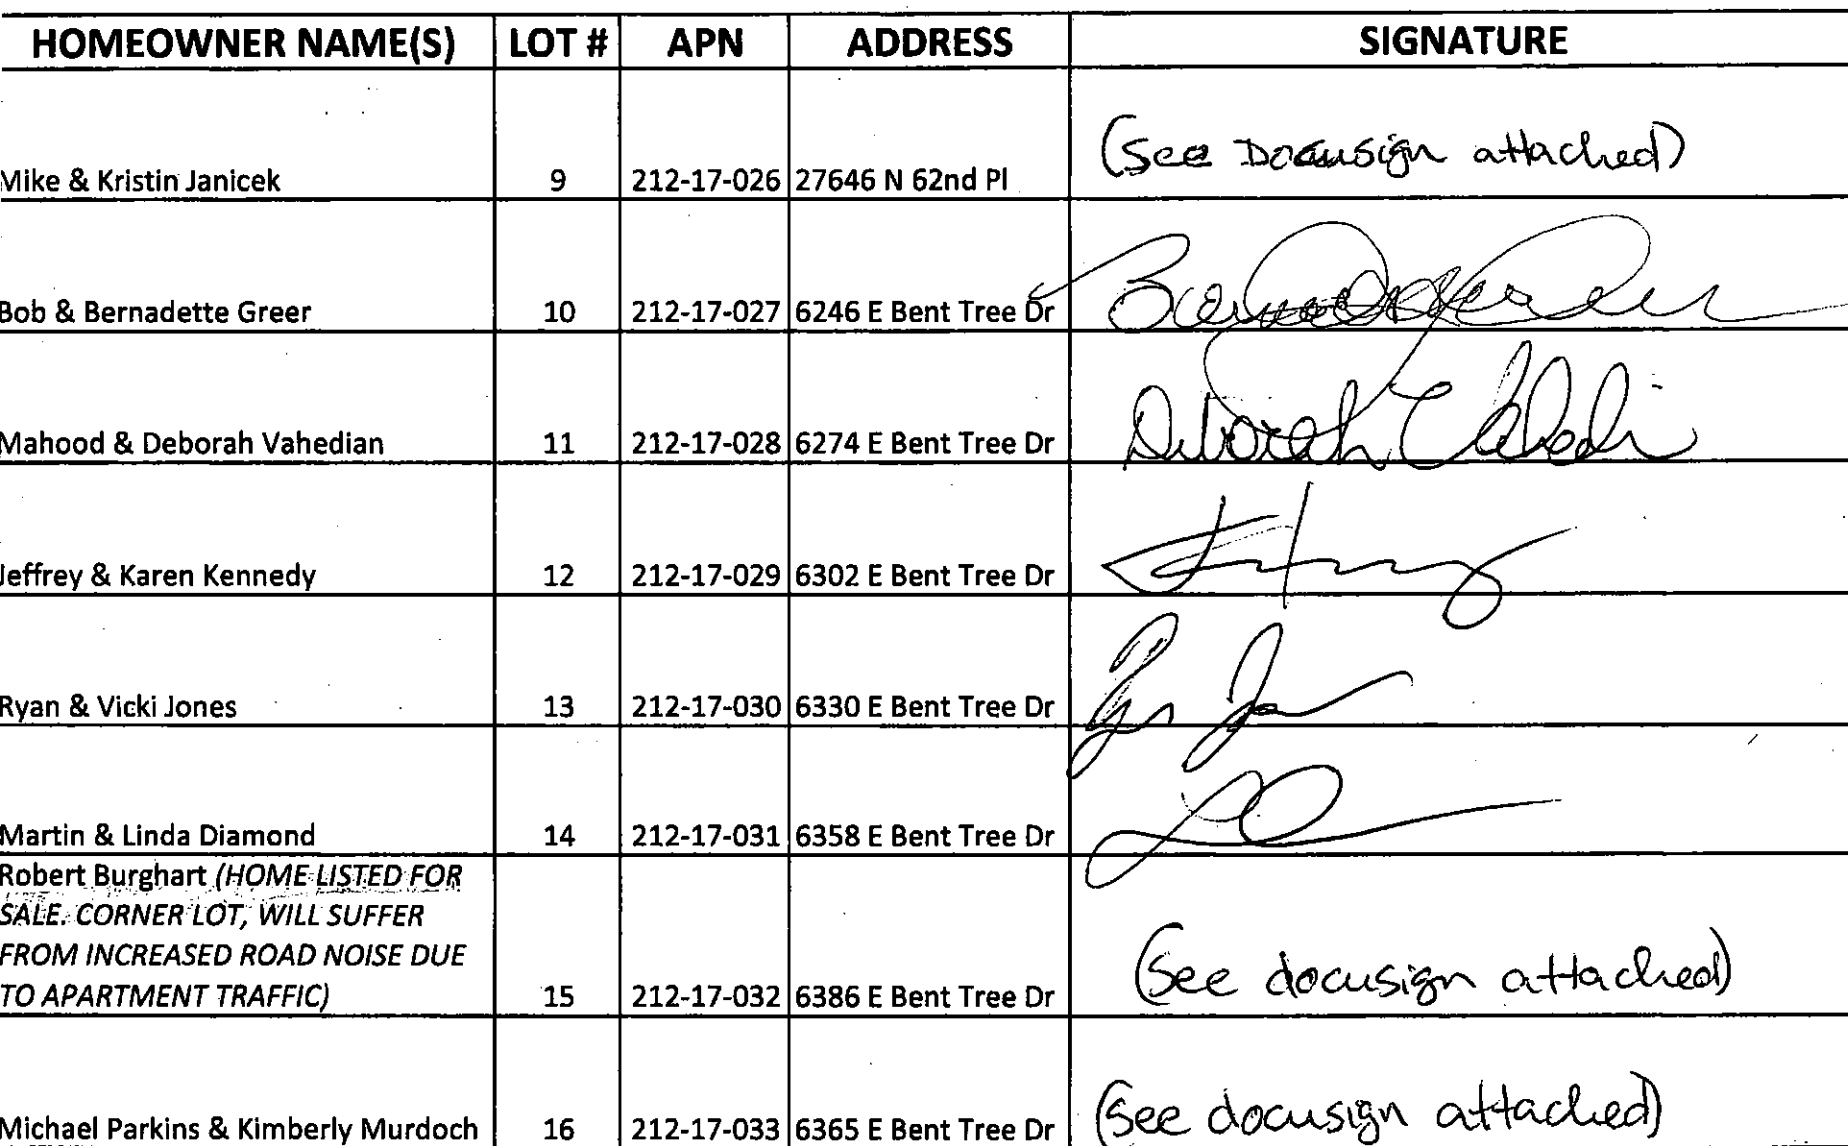 HOMEOWNER NAME(S) LOT # APN ADDRESS SIGNATURE
Mike & Kristin Janicek 9 212-17-026 27646 N 62nd Pl (See Docusign attached)
Bob & Bernadette Greer 10 212-17-027 6246 E Bent Tree Dr
Mahood & Deborah Vahedian 11 212-17-028 6274 E Bent Tree Dr Deborah
Jeffrey & Karen Kennedy 12 212-17-029 6302 E Bent Tree Dr
Ryan & Vicki Jones 13 212-17-030 6330 E Bent Tree Dr
Martin & Linda Diamond 14 212-17-031 6358 E Bent Tree Dr
Robert Burghart (HOME LISTED FOR
SALE. CORNER LOT, WILL SUFFER
FROM INCREASED ROAD NOISE DUE
TO APARTMENT TRAFFIC) 15 212-17-032 6386 E Bent Tree Dr (See docusign attached)
Michael Parkins & Kimberly Murdoch 16 212-17-033 6365 E Bent Tree Dr (See docusign attached)